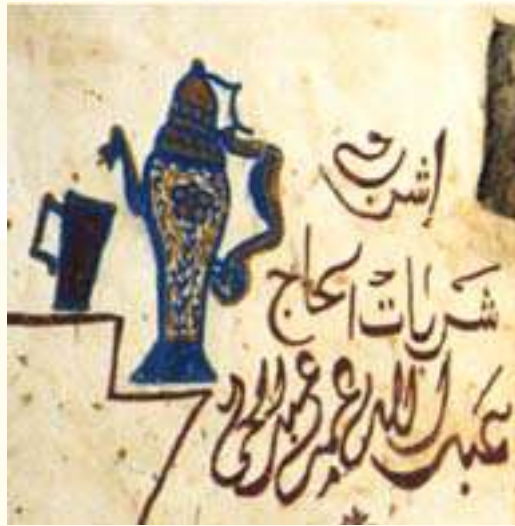 اشرب
شربات الحاج
عبد الله عمر عبد الحى